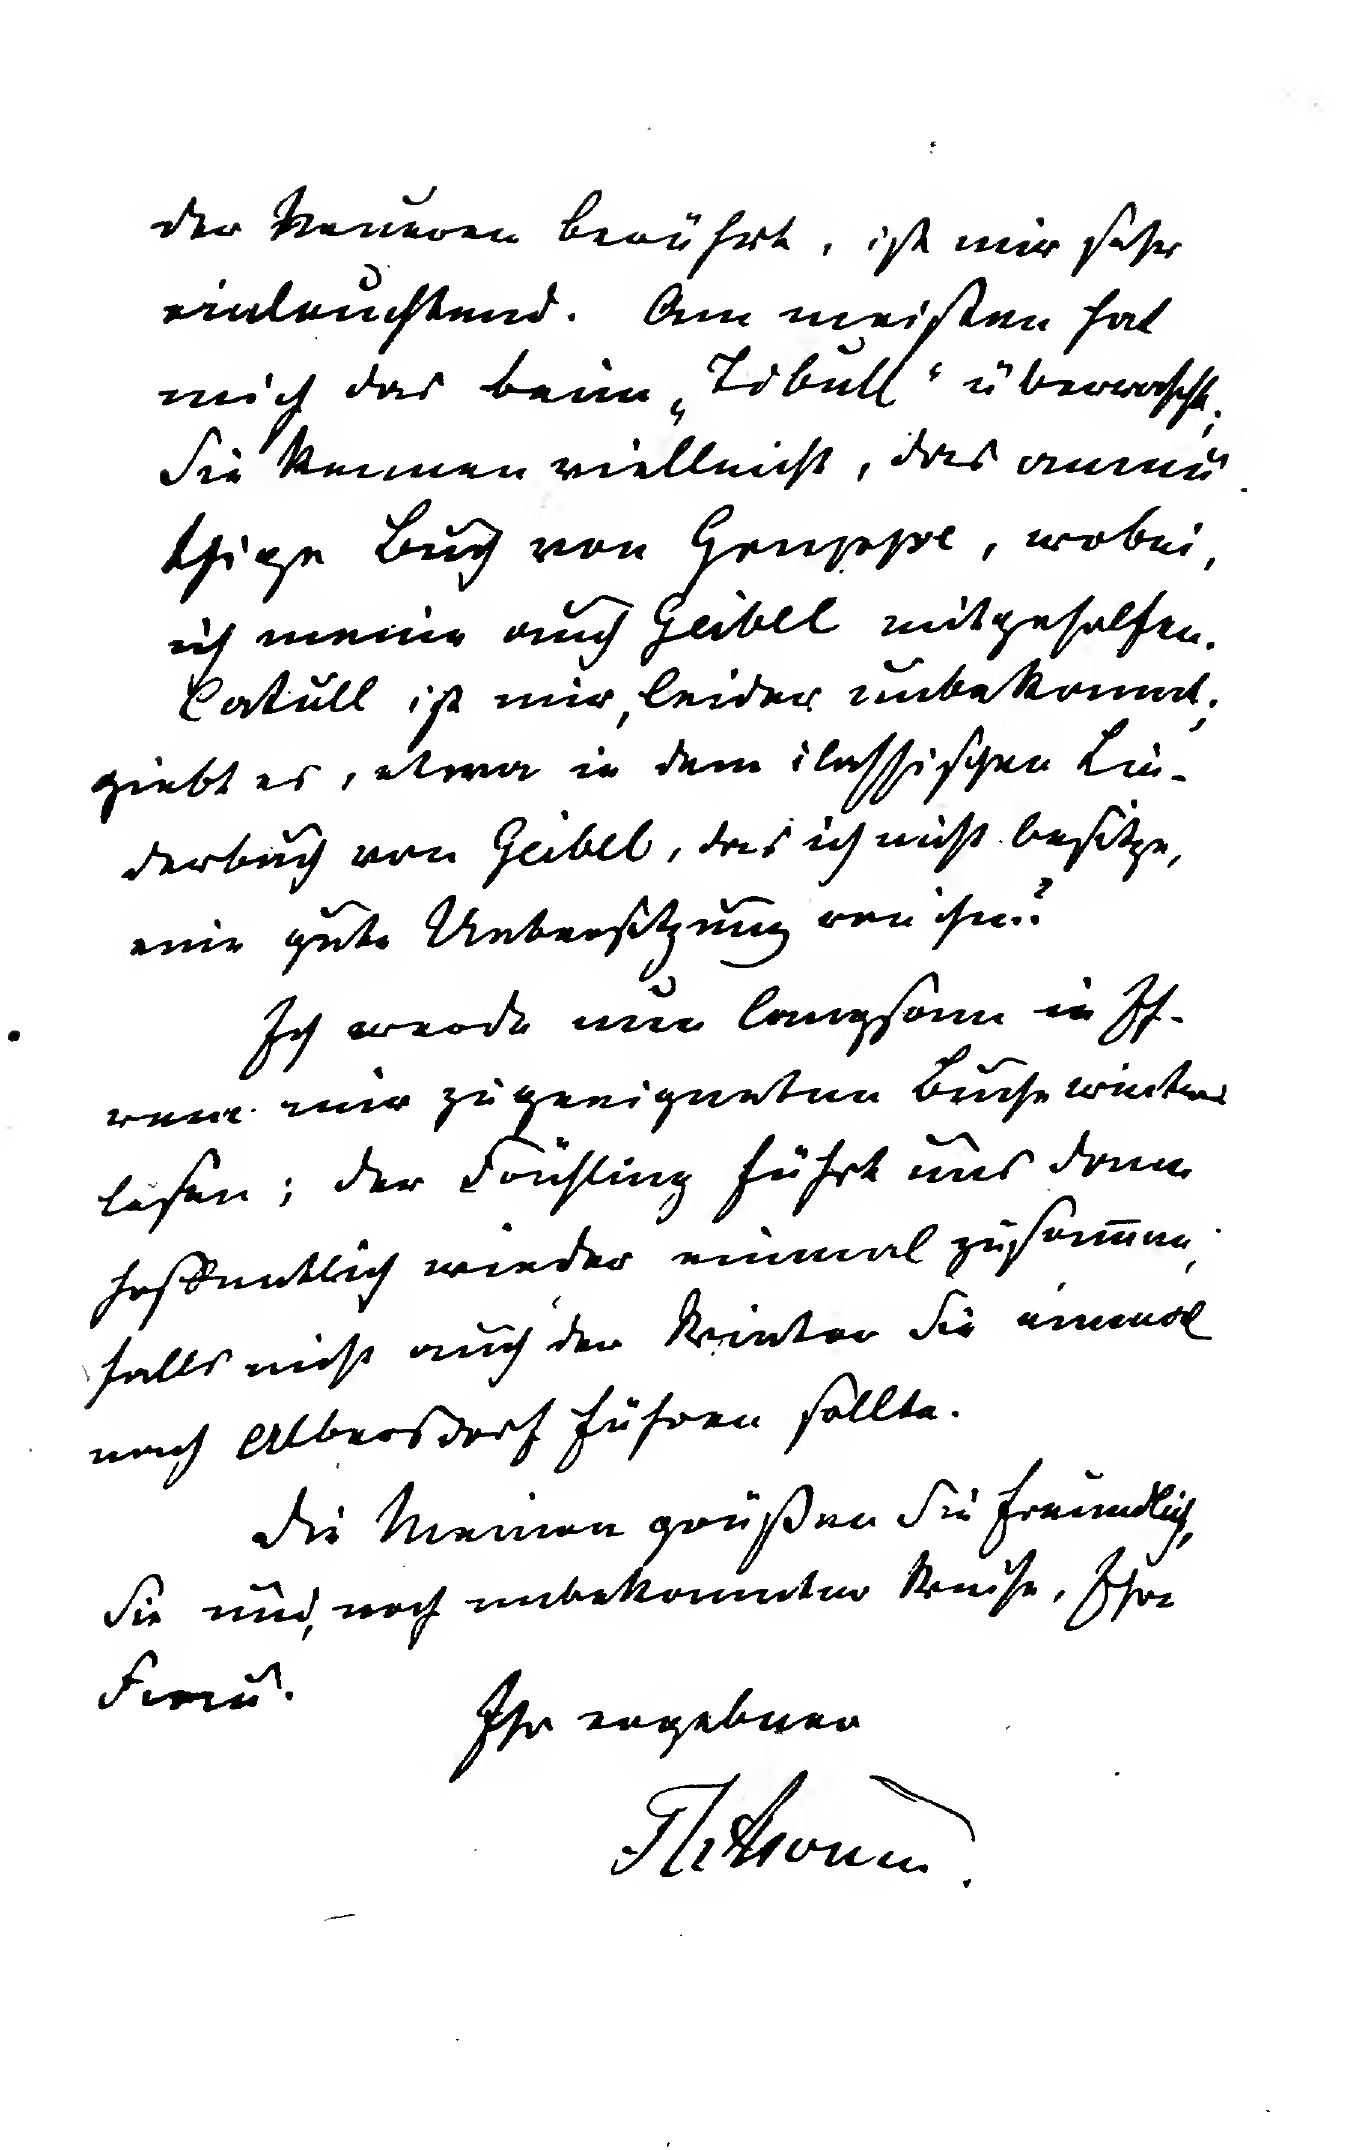 der Neueren berührt, ist mir sehr
einleuchtend. Am meisten hat
mich das beim „Tibull“ überrascht;
Sie kennen vielleicht, das anmu
thige Buch von Gruppe, wobei,
ich meine auch Geibel mitgeholfen.
Catull ist mir, leider unbekannt;
giebt es, etwa in dem classischen Lie-
derbuch von Geibel, das ich nicht besitze,
eine gute Uebersetzung von ihm?
Ich werde nun langsam in Ih-
rem mir zugeeigneten Buche weiter
lesen; der Frühling führt uns dann
hoffentlich wieder einmal zusammen,
falls nicht auch der Winter Sie einmal
nach Albersdorf führen sollte.
Die Meinen grüßen Sie freundlich,
Sie und, noch unbekannter Weise, Ihre
Frau.
Ihr ergebner
ThStorm.